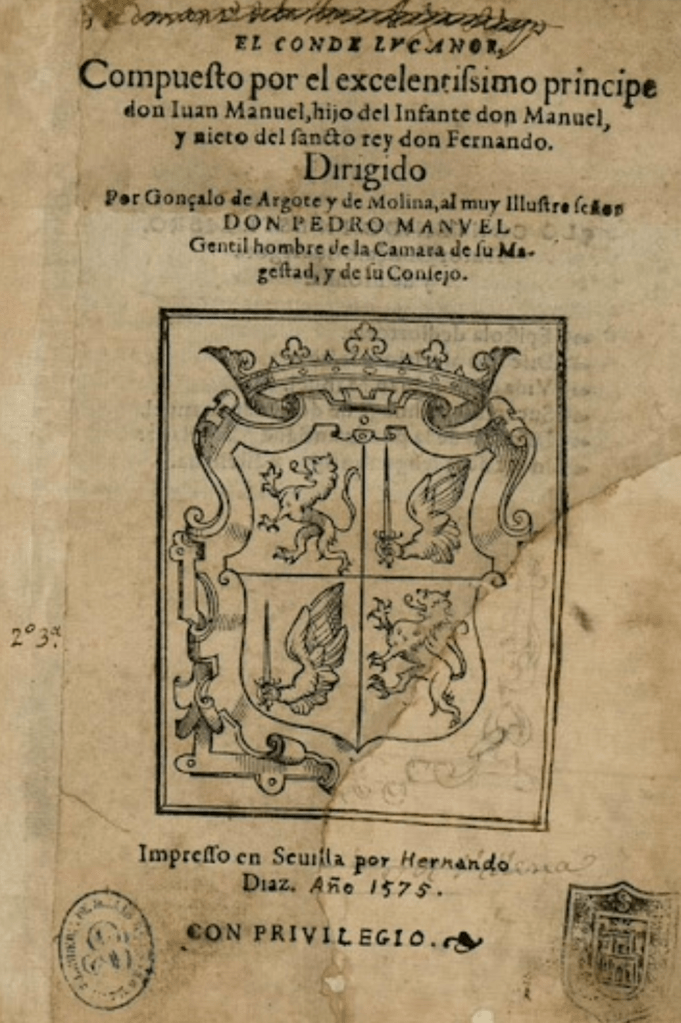 EL CONDE LVCANOR,
Compueſto por el excelentiſsimo principe
don Iuan Manuel, hijo del Infante don Manuel,
y nieto del ſancto rey don Fernando.
Dirigido
Por Gonçalo de Argote y de Molina, al muy Illuſtre ſeñor
DON PEDRO MANVEL
Gentil hombre de la Camara de ſu Ma-
geſtad, y de ſu Conſejo.
2º 3ª.
Impreſſo en Seuilla por Hernando
Diaz. Año 1575.
CON PRIVILEGIO.